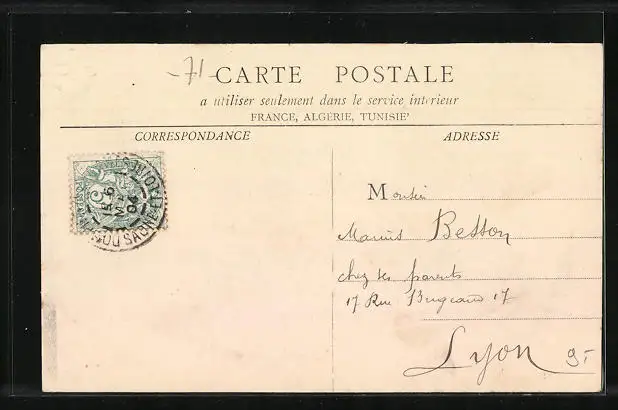 -71-
CARTE POSTALE
a utiliser seulement dans le service intérieur
FRANCE, ALGÉRIE, TUNISIE
CORRESPONDANCE
ADRESSE
15-6
04
Monsieur
Marius Besson
chez ses parents
17 Rue Bugeaud 17
Lyon